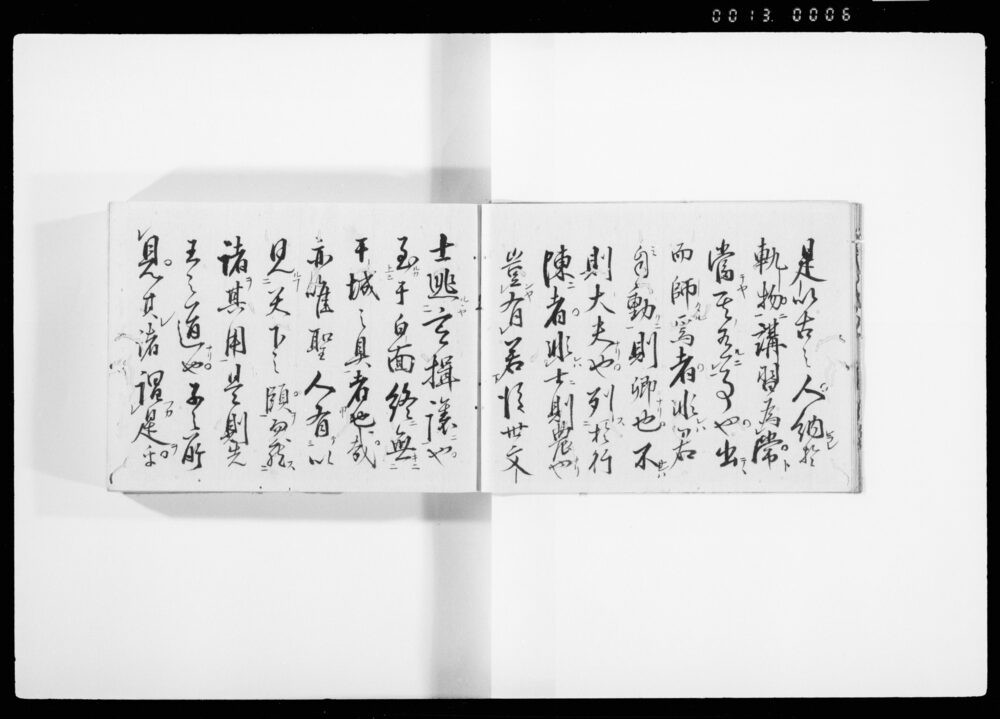 0013 0006
是以古之人納於
軌物講習為常
當其為事也出
而師焉者非君
自動則卿也不
則大夫也列於行
陳者非士則農也
豈有若後世文
士逃之揖讓也
至于白面終無
干城之具者也哉
亦惟聖人有以
見天下之賾而
諸其用是則先
王之道也吾所
見其諸謂是乎